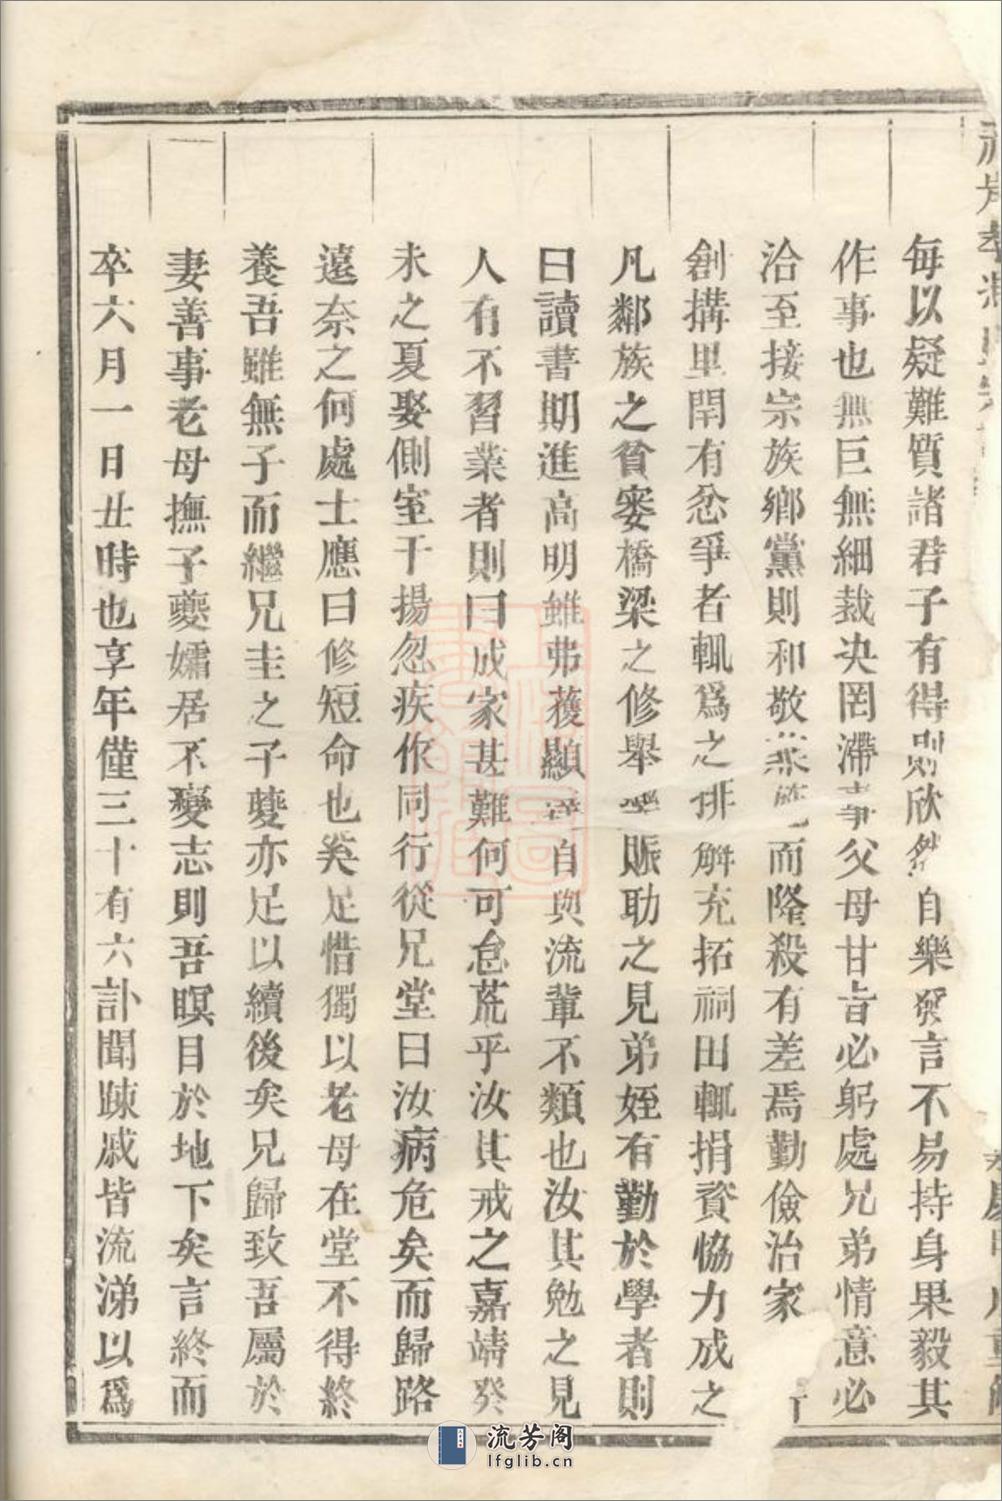 每以疑難質諸君子有得則欣然自樂發言不易持身果毅其
作事也無巨無細裁决罔滯事父母甘旨必躬處兄弟情意必
洽至接宗族鄉黨則和敬而隆殺有差焉勤儉治家
創搆里閈有忿爭者輒爲之排解充拓祠田輒捐資恊力成之
凡鄰族之貧窭橋梁之修舉賑助之見弟姪有勤於學者則
曰讀書期進高明雖弗獲顯達自與流軰不類也汝其勉之見
人有不習業者則曰成家甚難何可怠荒乎汝其戒之嘉靖癸
未之夏娶側室于揚忽疾作同行從兄堂曰汝病危矣而歸路
遠奈之何處士應曰修短命也奚足惜獨以老母在堂不得終
養吾雖無子而繼兄圭之子夔亦足以續後矣兄歸致吾屬於
妻善事老母撫子夔孀居不變志則吾瞑目於地下矣言終而
卒六月一日丑時也享年僅三十有六訃聞踈戚皆流涕以爲
流芳阁
lfglib.cn